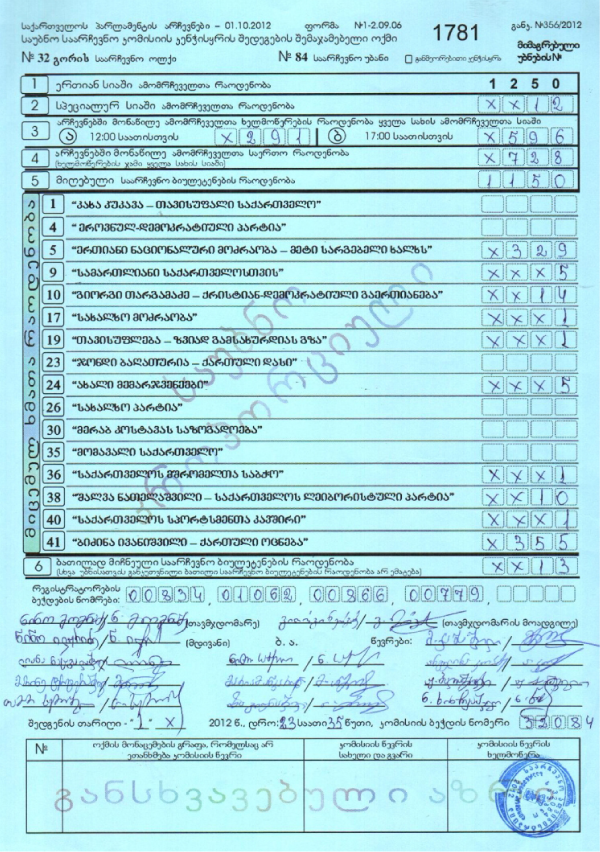 საქართველოს პარლამენტის არჩევნები – 01.10.2012 ფორმა №1-2.09.06 განკ. №356/2012
საუბნო საარჩევნო კომისიის კენჭისყრის შედეგების შემაჯამებელი ოქმი 1781 მიმაგრებული უბნების №
№ 32 გორის საარჩევნო ოლქი № 84 საარჩევნო უბანი განმეორებითი კენჭისყრა
1 ერთიან სიაში ამომრჩეველთა რაოდენობა 1 2 5 0
2 სპეციალურ სიაში ამომრჩეველთა რაოდენობა X X 1 2
არჩევნებში მონაწილე ამომრჩეველთა ხელმოწერების რაოდენობა ყველა სახის ამომრჩეველთა სიაში
3 ა 12:00 საათისთვის X 2 9 1 ბ 17:00 საათისთვის X 5 9 6
4 არჩევნებში მონაწილე ამომრჩეველთა საერთო რაოდენობა X 7 2 8
(ხელმოწერების ჯამი ყველა სახის სიაში)
5 მიღებული საარჩევნო ბიულეტენების რაოდენობა 1 1 5 0
მიცემულ ხმათა რაოდენობა
1 "კახა კუკავა – თავისუფალი საქართველო"
4 "ეროვნულ-დემოკრატიული პარტია"
5 "ერთიანი ნაციონალური მოძრაობა – მეტი სარგებელი ხალხს" X 3 2 9
9 "სამართლიანი საქართველოსთვის" X X X 5
10 "გიორგი თარგამაძე – ქრისტიან-დემოკრატიული გაერთიანება" X X 1 4
17 "სახალხო მოძრაობა" X X X 1
19 "თავისუფლება – ზვიად გამსახურდიას გზა" X X X 1
23 "ჯონდი ბაღათურია – ქართული დასი"
24 "ახალი მემარჯვენეები" X X X 5
26 "სახალხო პარტია"
30 "მერაბ კოსტავას საზოგადოება"
35 "მომავალი საქართველო"
36 "საქართველოს მშრომელთა საბჭო" X X X 1
38 "შალვა ნათელაშვილი – საქართველოს ლეიბორისტული პარტია" X X 1 0
40 "საქართველოს სპორტსმენთა კავშირი" X X X 1
41 "ბიძინა ივანიშვილი – ქართული ოცნება" X 3 5 5
საუბნო
პროპორციული
6 ბათილად მიჩნეული საარჩევნო ბიულეტენების რაოდენობა X X 1 3
(სხვა უბნისათვის განკუთვნილი ბათილი საარჩევნო ბიულეტენების რაოდენობა არ ემატება)
რეგისტრატორების
ბეჭდების ნომრები: 00834, 01062, 00866, 00779,
(თავმჯდომარე) (თავმჯდომარის მოადგილე)
(მდივანი) ბ. ა. წევრები:
შედგენის თარიღი - "1" X 2012 წ., დრო: 23 საათი 35 წუთი, კომისიის ბეჭდის ნომერი 32084
№ ოქმის მონაცემების გრაფა, რომელსაც არ ეთანხმება კომისიის წევრი კომისიის წევრის სახელი და გვარი კომისიის წევრის ხელმოწერა
განსხვავებული აზრი